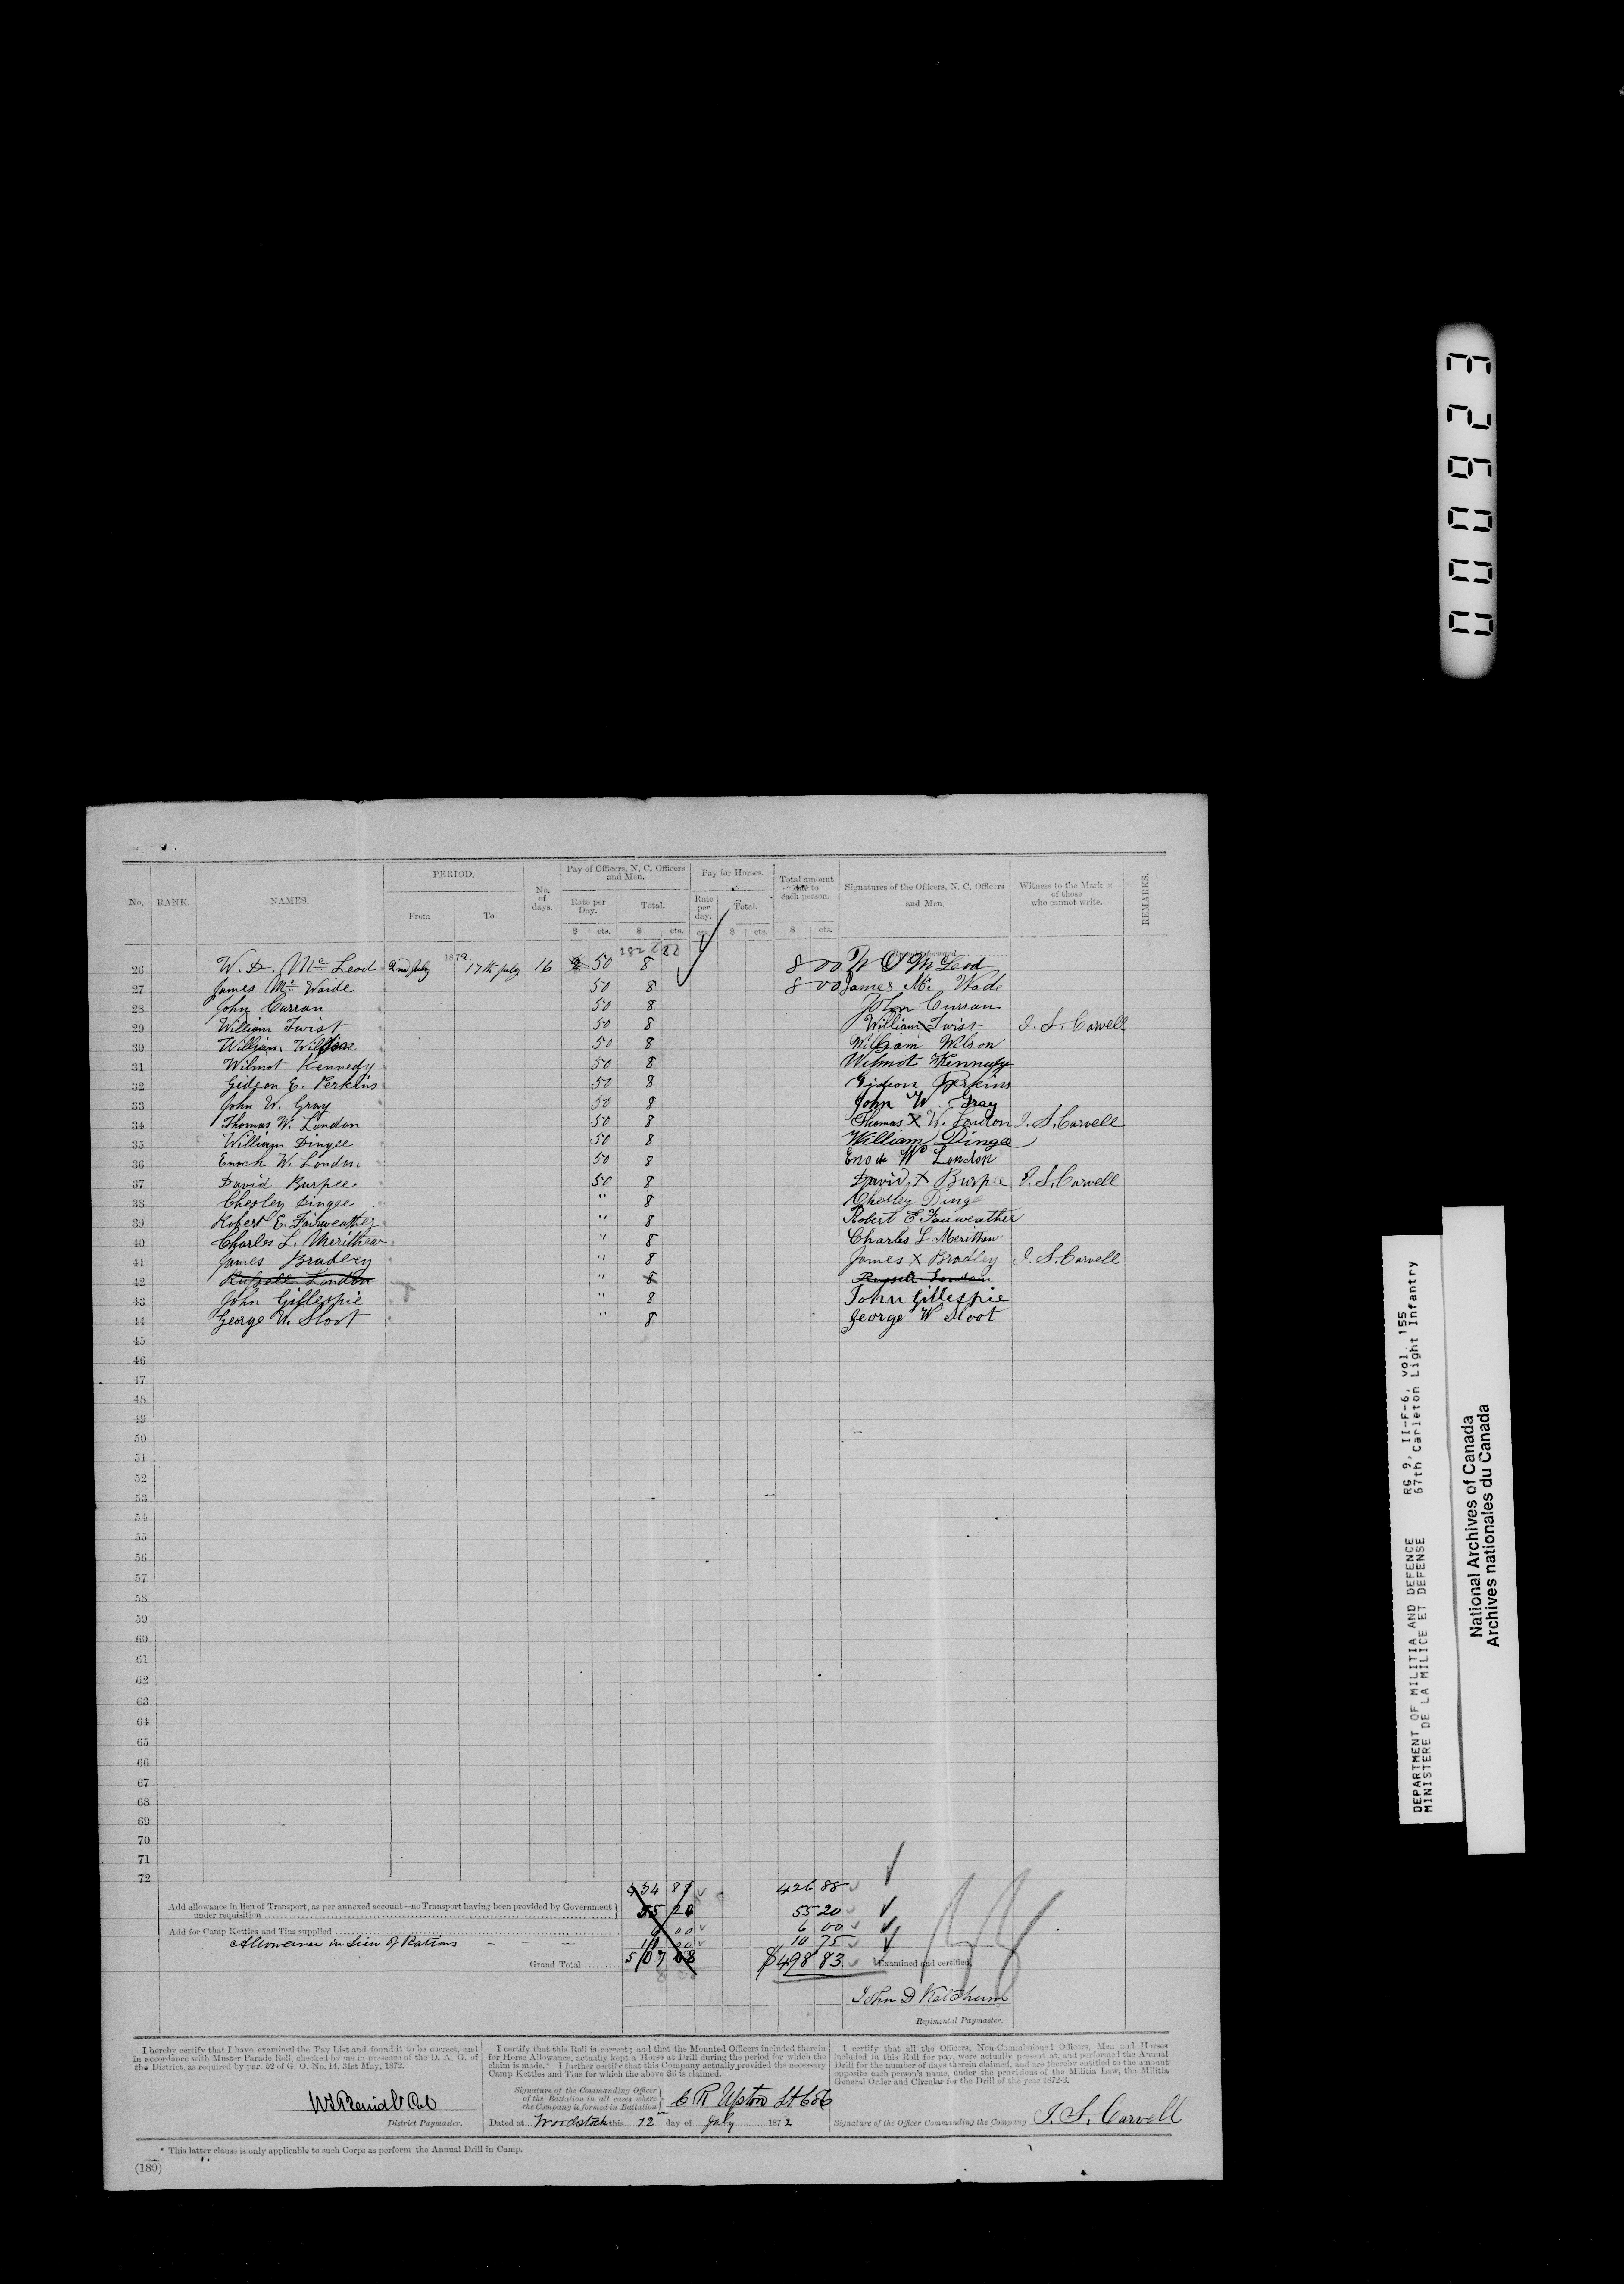 No. RANK. NAMES. PERIOD. From To No. of days. Pay of Officers, N. C. Officers and Men. Rate per Day. $ cts. Total. $ cts. Pay for Horses. Rate per day. cts. Total. $ cts. Total amount to each person. $ cts. Signatures of the Officers, N. C. Officers and Men. Witness to the Mark × of those who cannot write. REMARKS.
282 88
26 W. D. McLeod 2nd July 1872 17th July 16 50 8 8 00 W D McLeod
27 James Mc Waide 50 8 8 00 James Mc Wade
28 John Curran 50 8 John Curran
29 William Twist 50 8 William X Twist I. S. Carvell
30 William Wilson 50 8 William Wilson
31 Wilmot Kennedy 50 8 Wilmot Kennedy
32 Gideon E. Perkins 50 8 Gideon Perkins
33 John W. Gray 50 8 John W Gray
34 Thomas W. London 50 8 Thomas X W. London I. S. Carvell
35 William Dingee 50 8 William Dingee
36 Enoch W. London 50 8 Enoch W London
37 David Burpee 50 8 David X Burpee I. S. Carvell
38 Chesley Dingee " 8 Chesley Dinge
39 Robert E. Fairweather " 8 Robert E Fairweather
40 Charles L. Merithew " 8 Charles L Merithew
41 James Bradley " 8 James X Bradley I. S. Carvell
42 Russell London " 8 Russell London
43 John Gillespie " 8 John Gillespie
44 George W. Sloot " 8 George W Sloot
45
46
47
48
49
50
51
52
53
54
55
56
57
58
59
60
61
62
63
64
65
66
67
68
69
70
71
72
434 88 426 88
Add allowance in lieu of Transport, as per annexed account—no Transport having been provided by Government under requisition 55 20 55 20
Add for Camp Kettles and Tins supplied 6 00 6 00
Allowance in Lieu of Rations 11 00 10 75
Grand Total 507 08 $498 83 Examined and certified,
John D Ketchum
Regimental Paymaster.
I hereby certify that I have examined the Pay List and found it to be correct, and in accordance with Muster Parade Roll, checked by me in presence of the D. A. G. of the District, as required by par. 52 of G. O. No. 14, 31st May, 1872.
District Paymaster.
I certify that this Roll is correct; and that the Mounted Officers included therein for Horse Allowance, actually kept a Horse at Drill during the period for which the claim is made.* I further certify that this Company actually provided the necessary Camp Kettles and Tins for which the above $6 is claimed.
Signature of the Commanding Officer of the Battalion in all cases where the Company is formed in Battalion C R Upton Lt Col
Dated at Woodstock this 12 day of July 1872
I certify that all the Officers, Non-Commissioned Officers, Men and Horses included in this Roll for pay, were actually present at, and performed the Annual Drill for the number of days therein claimed, and are thereby entitled to the amount opposite each person's name, under the provisions of the Militia Law, the Militia General Order and Circular for the Drill of the year 1872-3.
Signature of the Officer Commanding the Company I. S. Carvell
* This latter clause is only applicable to such Corps as perform the Annual Drill in Camp.
(180)
000623
DEPARTMENT OF MILITIA AND DEFENCE RG 9, II-F-6, vol. 155
MINISTERE DE LA MILICE ET DEFENSE 67th Carleton Light Infantry
National Archives of Canada
Archives nationales du Canada